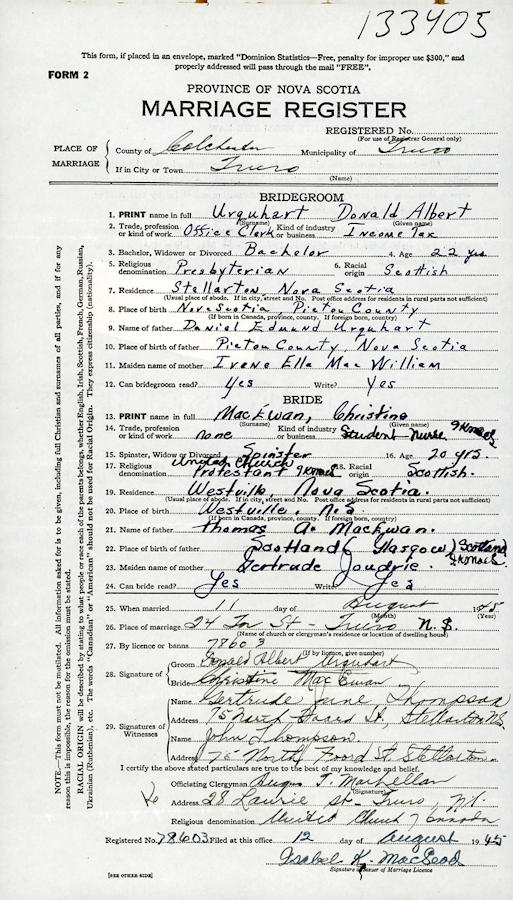 133405
This form, if placed in an envelope, marked "Dominion Statistics—Free, penalty for improper use $300," and
properly addressed will pass through the mail "FREE".
FORM 2
PROVINCE OF NOVA SCOTIA
MARRIAGE REGISTER
REGISTERED No.
(For use of Registrar General only)
PLACE OF MARRIAGE { County of Colchester Municipality of Truro
If in City or Town Truro
(Name)
BRIDEGROOM
1. PRINT name in full Urquhart Donald Albert
(Surname) (Given name)
2. Trade, profession or kind of work Office Clerk Kind of industry or business Income Tax
3. Bachelor, Widower or Divorced Bachelor 4. Age 22 yrs
5. Religious denomination Presbyterian 6. Racial origin Scottish
7. Residence Stellarton, Nova Scotia
(Usual place of abode. If in city, street and No. Post office address for residents in rural parts not sufficient)
8. Place of birth Nova Scotia, Pictou County
(If born in Canada, province, county. If foreign born, country)
9. Name of father Daniel Edmund Urquhart
10. Place of birth of father Pictou County, Nova Scotia
11. Maiden name of mother Irene Ella MacWilliam
12. Can bridegroom read? Yes Write? Yes
BRIDE
13. PRINT name in full MacEwan, Christine
(Surname) (Given name)
14. Trade, profession or kind of work none Kind of industry or business Student Nurse
15. Spinster, Widow or Divorced Spinster 16. Age 20 yrs.
17. Religious denomination United Church Protestant 18. Racial origin Scottish.
19. Residence Westville, Nova Scotia.
(Usual place of abode. If in city, street and No. Post office address for residents in rural parts not sufficient)
20. Place of birth Westville, N.S
(If born in Canada, province, county. If foreign born, country)
21. Name of father Thomas A. MacEwan.
22. Place of birth of father Scotland (Glasgow) Scotland
23. Maiden name of mother Gertrude Joudrie.
24. Can bride read? Yes Write? Yes
25. When married 11 day of August 1945
(Month) (Year)
26. Place of marriage 24 St - Truro N.S.
(Name of church or clergyman's residence or location of dwelling house)
27. By licence or banns 78603
(If by licence, give number)
28. Signature of { Groom Donald Albert Urquhart
Bride Christine MacEwan
29. Signatures of Witnesses { Name Gertrude Jane Thompson
Address 75 North Foord St, Stellarton N.S
Name John Thompson
Address 75 North Foord St. Stellarton
I certify the above stated particulars are true to the best of my knowledge and belief.
Officiating Clergyman Angus J. MacLellan
(Signature)
Address 28 Laurie St - Truro,
Religious denomination United Church of Canada
Registered No. 78603 Filed at this office 12 day of August 1945
Isabel K. MacLeod
Signature of Issuer of Marriage Licence
[SEE OTHER SIDE]
NOTE.—This form must not be mutilated. All information asked for is to be given, including full Christian and surnames of all parties, and if for any
reason this is impossible, the reason for the omission must be stated.
RACIAL ORIGIN will be described by stating to what people or race each of the parents belongs, whether English, Irish, Scottish, French, German, Russian,
Ukrainian (Ruthenian), etc. The words "Canadian" or "American" should not be used for Racial Origin. They express citizenship (nationality).